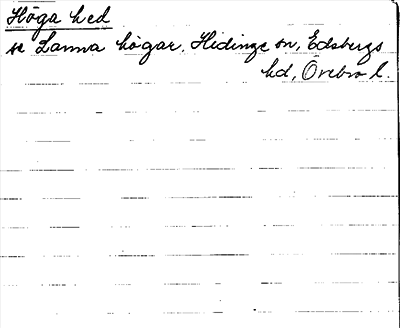 Höga hed
se Lanna högar, Hidinge sn, Edsbergs
hd, Örebro l.